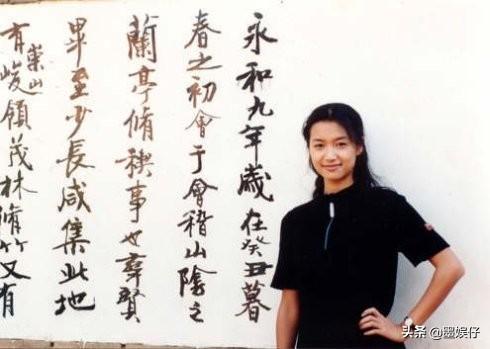 永和九年歲在癸丑暮
春之初會于會稽山陰之
蘭亭脩稧事也羣賢
畢至少長咸集此地
有崇山峻領茂林脩竹又有
头条 @墨娱仔